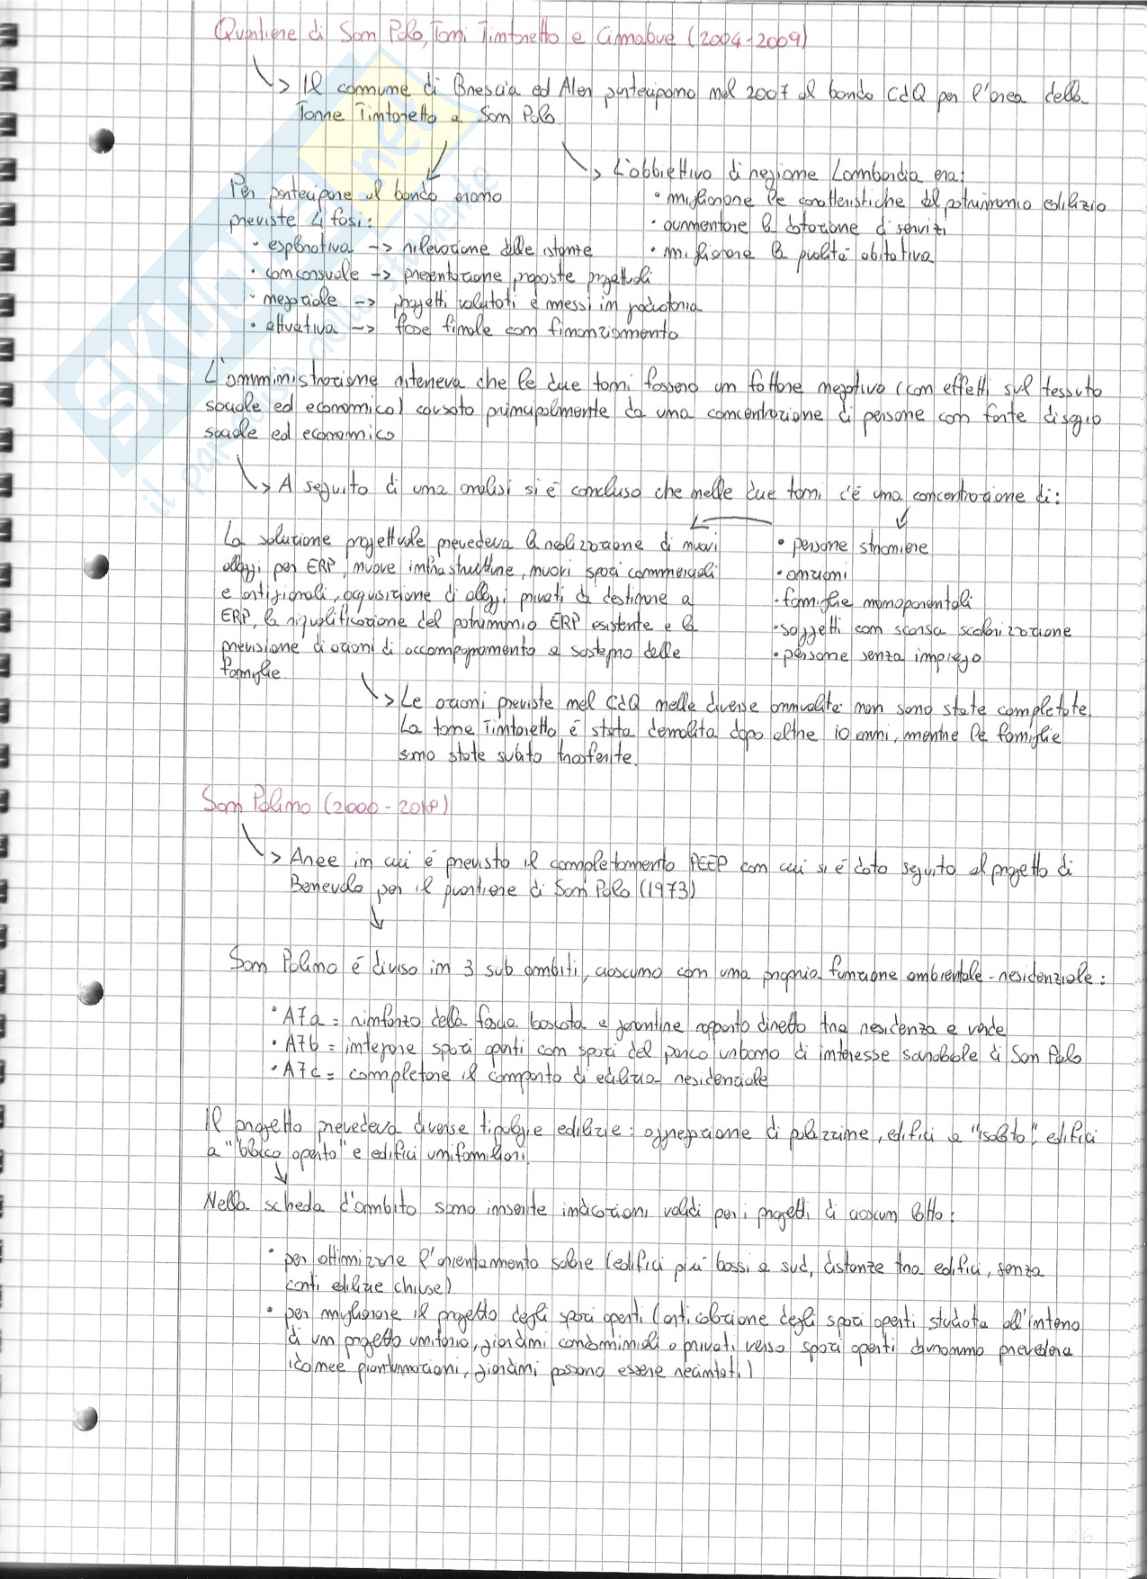 Quartiere di San Polo, Torri Tintoretto e Cimabue (2004-2009)
Il comune di Brescia ed Aler partecipano nel 2007 al bando CdQ per l'area della
Torre Tintoretto a San Polo
Per partecipare al bando erano
previste 4 fasi:
• esplorativa -> rilevazione delle istanze
• concorsuale -> presentazione proposte progettuali
• negoziale -> progetti valutati e messi in graduatoria
• attuativa -> fase finale con finanziamento
L'obbiettivo di regione Lombardia era:
• migliorare le caratteristiche del patrimonio edilizio
• aumentare la dotazione di servizi
• migliorare la qualità abitativa
L'amministrazione riteneva che le due torri fossero un fattore negativo (con effetti sul tessuto
sociale ed economico) causato principalmente da una concentrazione di persone con forte disagio
sociale ed economico
A seguito di una analisi si è concluso che nelle due torri c'è una concentrazione di:
• persone straniere
• anziani
• famiglie monoparentali
• soggetti con scarsa scolarizzazione
• persone senza impiego
La soluzione progettuale prevedeva la realizzazione di nuovi
alloggi per ERP, nuove infrastrutture, nuovi spazi commerciali
e artigianali, acquisizione di alloggi privati da destinare a
ERP, la riqualificazione del patrimonio ERP esistente e la
previsione di azioni di accompagnamento a sostegno delle
famiglie.
Le azioni previste nel CdQ nelle diverse annualità non sono state completate.
La torre Tintoretto è stata demolita dopo oltre 10 anni, mentre le famiglie
sono state subito trasferite.
San Polino (2000-2018)
Aree in cui è previsto il completamento PEEP con cui si è dato seguito al progetto di
Benevolo per il quartiere di San Polo (1973)
San Polino è diviso in 3 sub ambiti, ciascuno con una propria funzione ambientale-residenziale:
• A7a = rinforzo della fascia boscata e garantire rapporto diretto tra residenza e verde
• A7b = integrare spazi aperti con spazi del parco urbano di interesse sovralocale di San Polo
• A7c = completare il comparto di edilizia residenziale
Il progetto prevedeva diverse tipologie edilizie: aggregazione di palazzine, edifici a "isolato", edifici
a "blocco aperto" e edifici unifamiliari
Nella scheda d'ambito sono inserite indicazioni validi per i progetti di ciascun lotto:
• per ottimizzare l'orientamento solare (edifici più bassi a sud, distanze tra edifici, senza
corti edilizie chiuse)
• per migliorare il progetto degli spazi aperti (articolazione degli spazi aperti studiata all'interno
di un progetto unitario, giardini condominiali o privati verso spazi aperti dovranno prevedere
idonee piantumazioni, giardini possono essere recintati)
SKUOLA.net